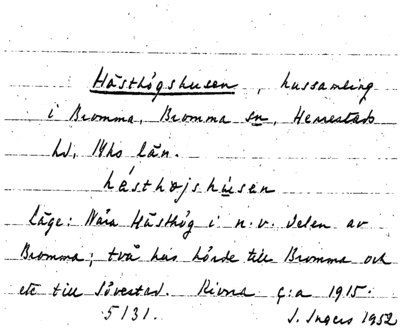 Hästhögshusen, hussamling
i Bromma, Bromma sn, Herrestads
hd, Mhs län.
hästhøjshúsen
Läge: Nära Hästhög i n.v. delen av
Bromma; två hus hörde till Bromma och
ett till Sövestad. Rivna c:a 1915.
5131. J. Ingers 1952